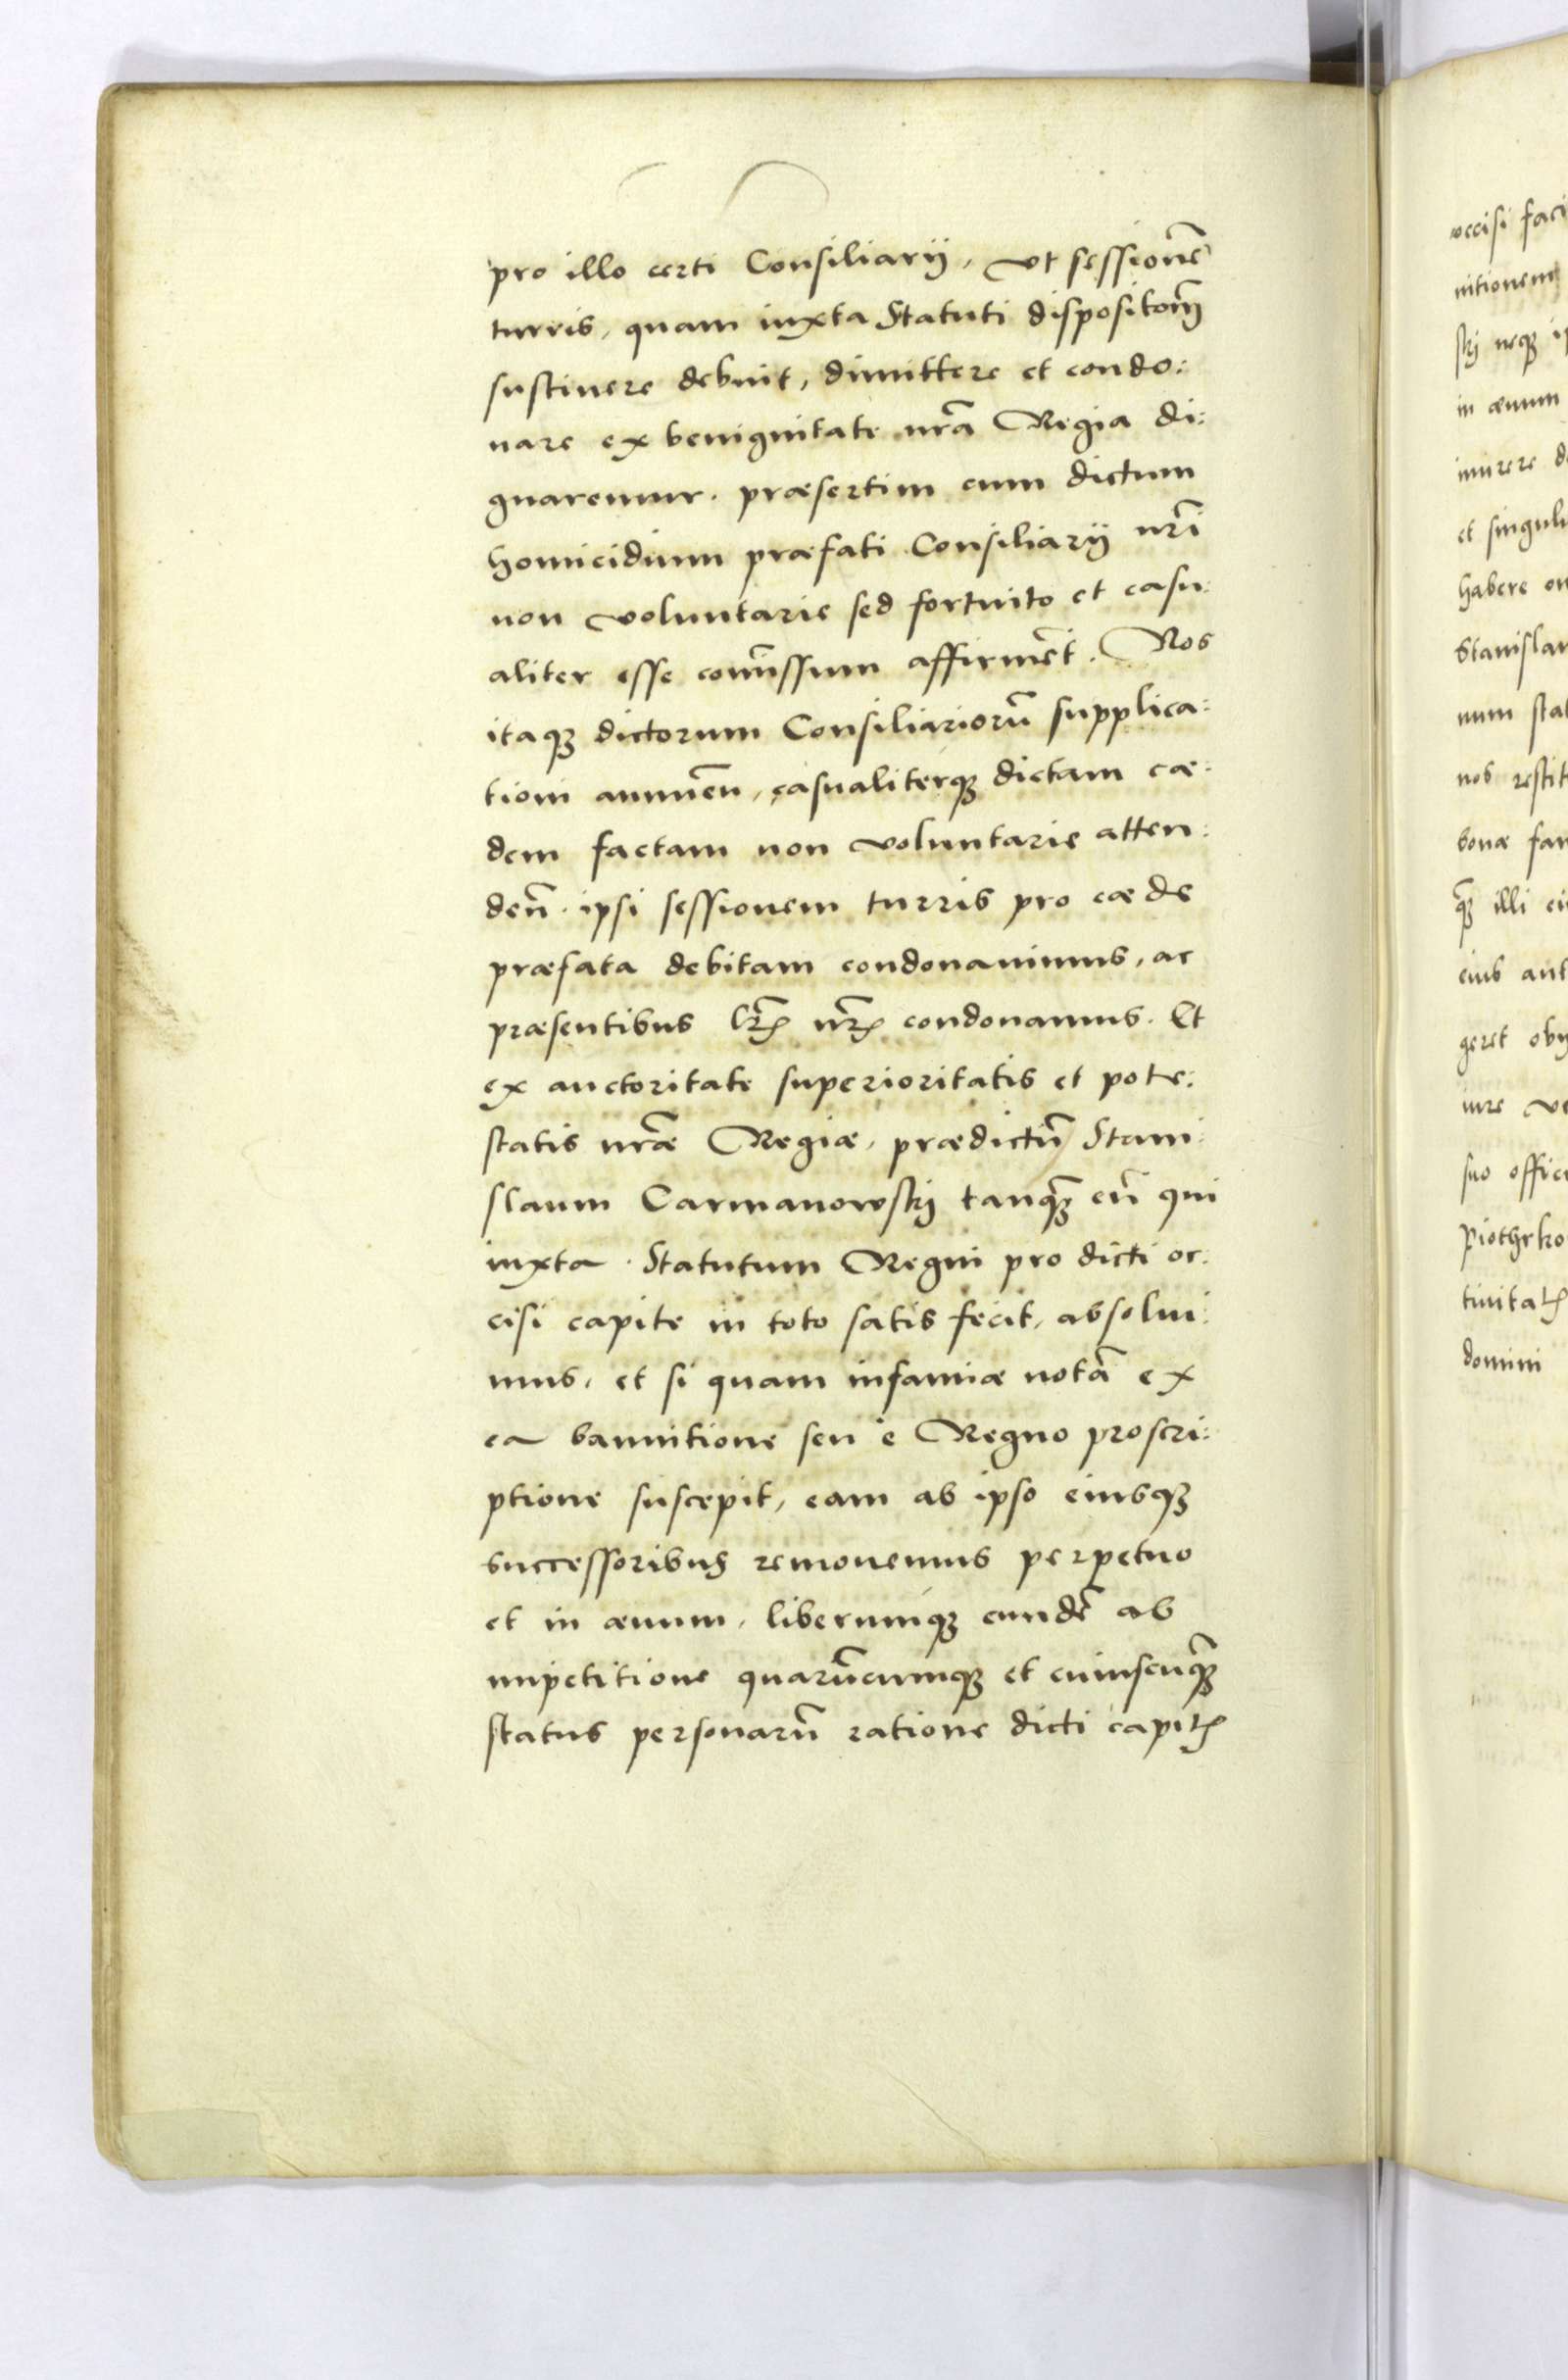 pro illo certi Consiliarij, vt sessionẽ
turris, quam iuxta Statuti dispositoem̃
sustinere debuit, dimittere et condo:
nare ex benignitate nrã Regia di:
gnaremur. præsertim cum dictum
homicidium præfati Consiliarij nrĩ
non voluntarie sed fortuito et casu:
aliter esse com̃issum affirmẽt. Nos
itaqꝫ dictorum Consiliariorũ supplica:
tioni annueñ, casualiterqꝫ dictam cæ:
dem factam non voluntarie atten:
deñ. ipsi sessionem turris pro cæde
præfata debitam condonauimus, ac
præsentibus lrĩs nrĩs condonamus. Et
ex auctoritate superioritatis et pote:
statis nræ̃ Regiæ, prædictũ Stani:
slaum Carmanowskj tanqꝫ eũ qui
iuxta Statutum Regni pro dicti oc:
cisi capite in toto satis fecit, absolui:
mus, et si quam infamiæ notã ex
ea bannitione seu e Regno proscri:
ptione suscepit, eam ab ipso eiusqꝫ
successoribus remouemus perpetuo
et in æuum, liberumqꝫ eundẽ ab
impetitione quarũcumqꝫ et cuiuscuqꝫ̃
status personarũ ratione dicti capitꝭ
occisi faci
nitionem
skj neqꝫ
in æuum
inurere
et singul
habere
Stanisla
num
nos restit
bonæ fa
qꝫ̃ illi
eius
geret
iure
suo offic
Piothrko
tiuitatꝭ
domini